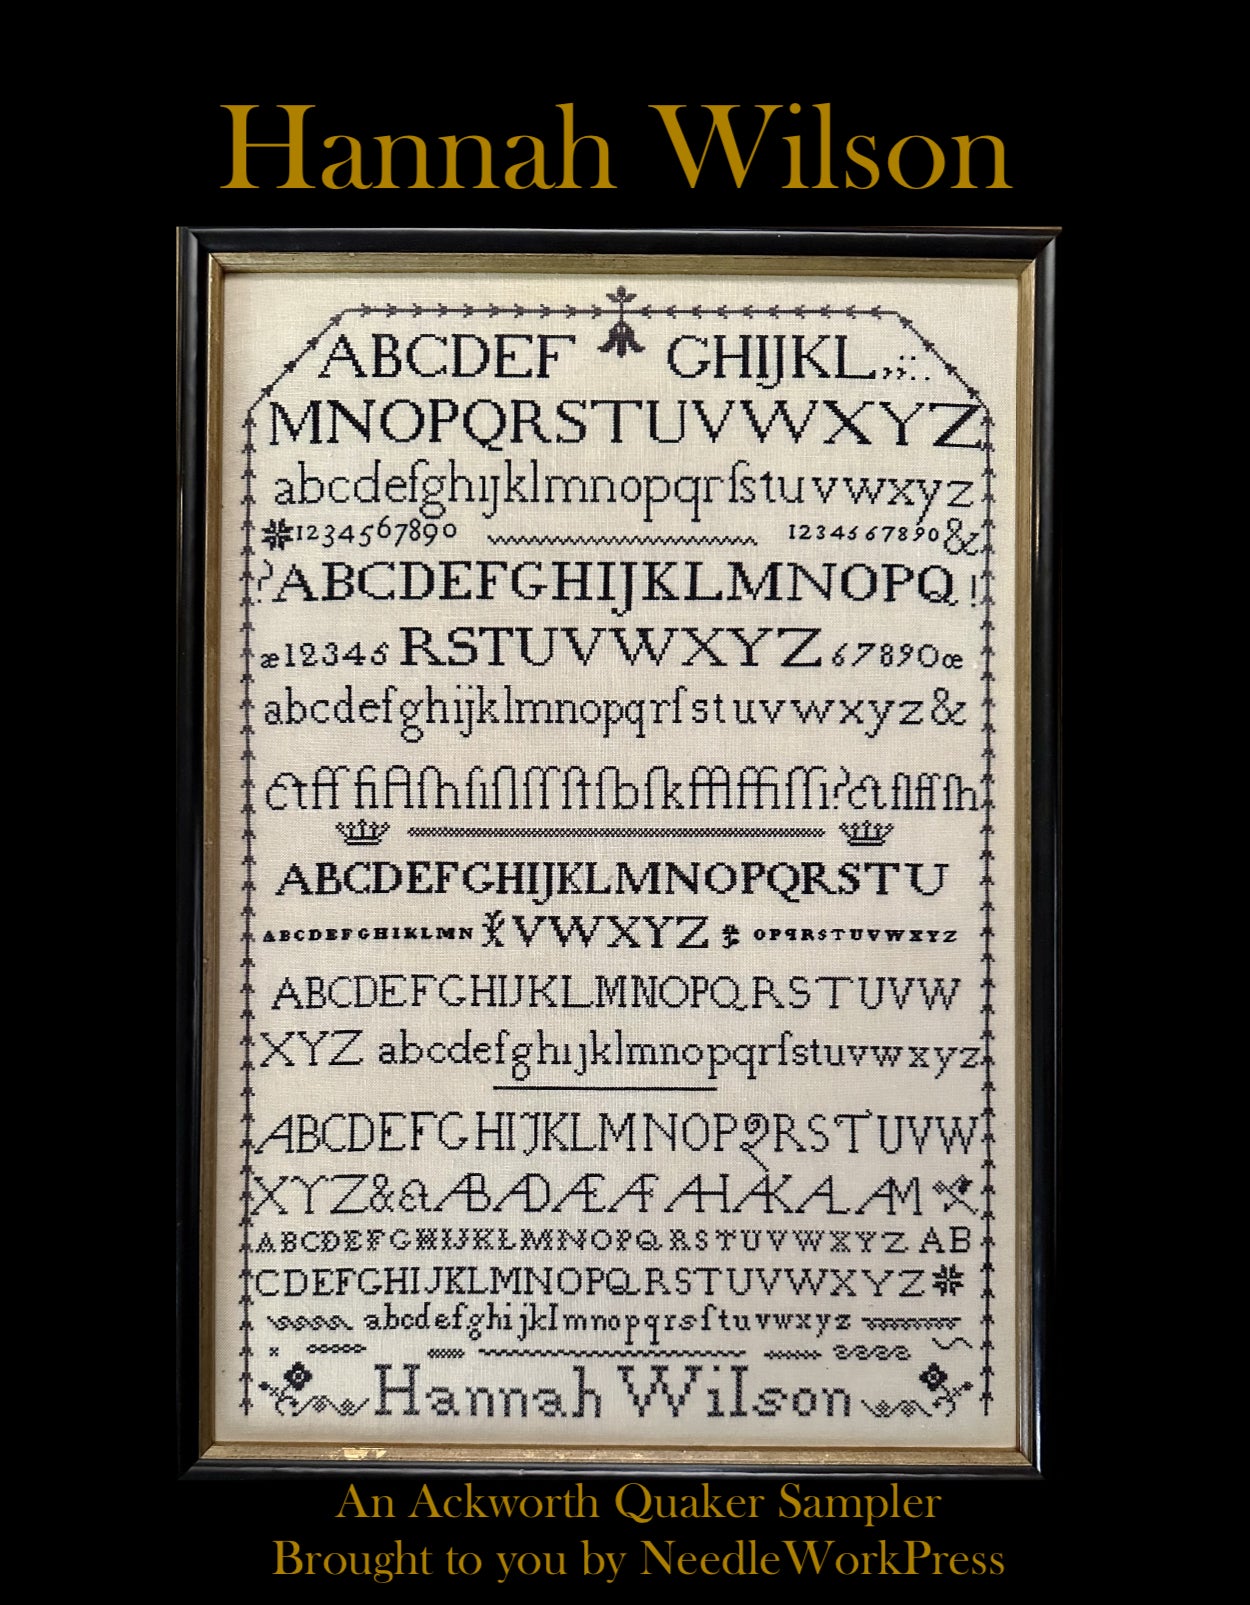 Hannah Wilson
ABCDEF GHIJKL,;:.
MNOPQRSTUVWXYZ
abcdefghijklmnopqrſstuvwxyz
1234567890 1234567890&
?ABCDEFGHIJKLMNOPQ!
æ12345 RSTUVWXYZ 67890œ
abcdefghijklmnopqrſstuvwxyz&
ABCDEFGHIJKLMNOPQRSTU
ABCDEFGHIKLMN VWXYZ OPQRSTUVWXYZ
ABCDEFGHIJKLMNOPQRSTUVW
XYZ abcdefghıȷklmnopqrſstuvwxyz
ABCDEFGHIJKLMNOPQRSTUVW
XYZ&
ABCDEFGHIJKLMNOPQRSTUVWXYZ AB
CDEFGHIJKLMNOPQRSTUVWXYZ
abcdefghijklmnopqrsſtuvwxyz
Hannah Wilson
An Ackworth Quaker Sampler
Brought to you by NeedleWorkPress